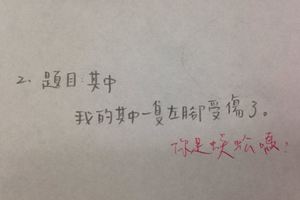 2. 題目:其中
我的其中一隻左腳受傷了。
你是蜈蚣嗎?